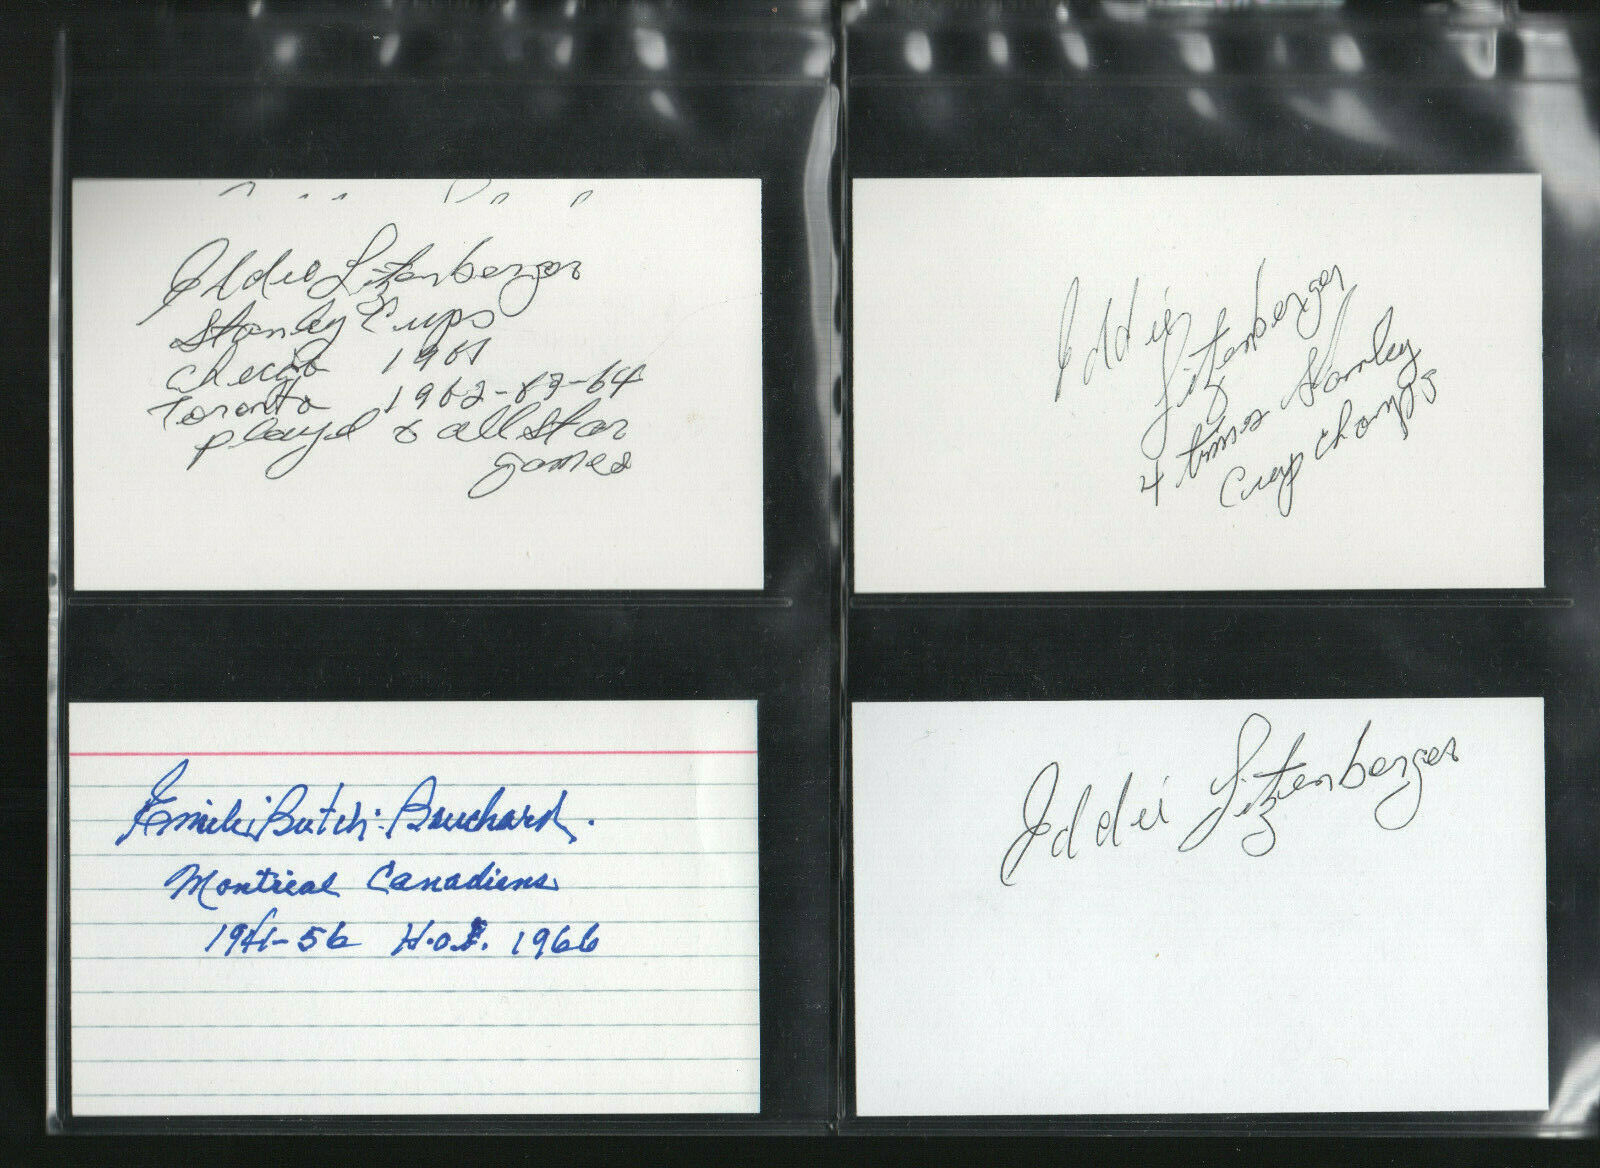 Eddie Litzenberger
Stanley Cups
Chicago 1961
Toronto 1962-63-64
played 6 all star
games
Eddie
Litzenberger
4 times Stanley
Cup Champs
Emile "Butch" Bouchard.
Montreal Canadiens
1941-56 H.O.F. 1966
Eddie Litzenberger